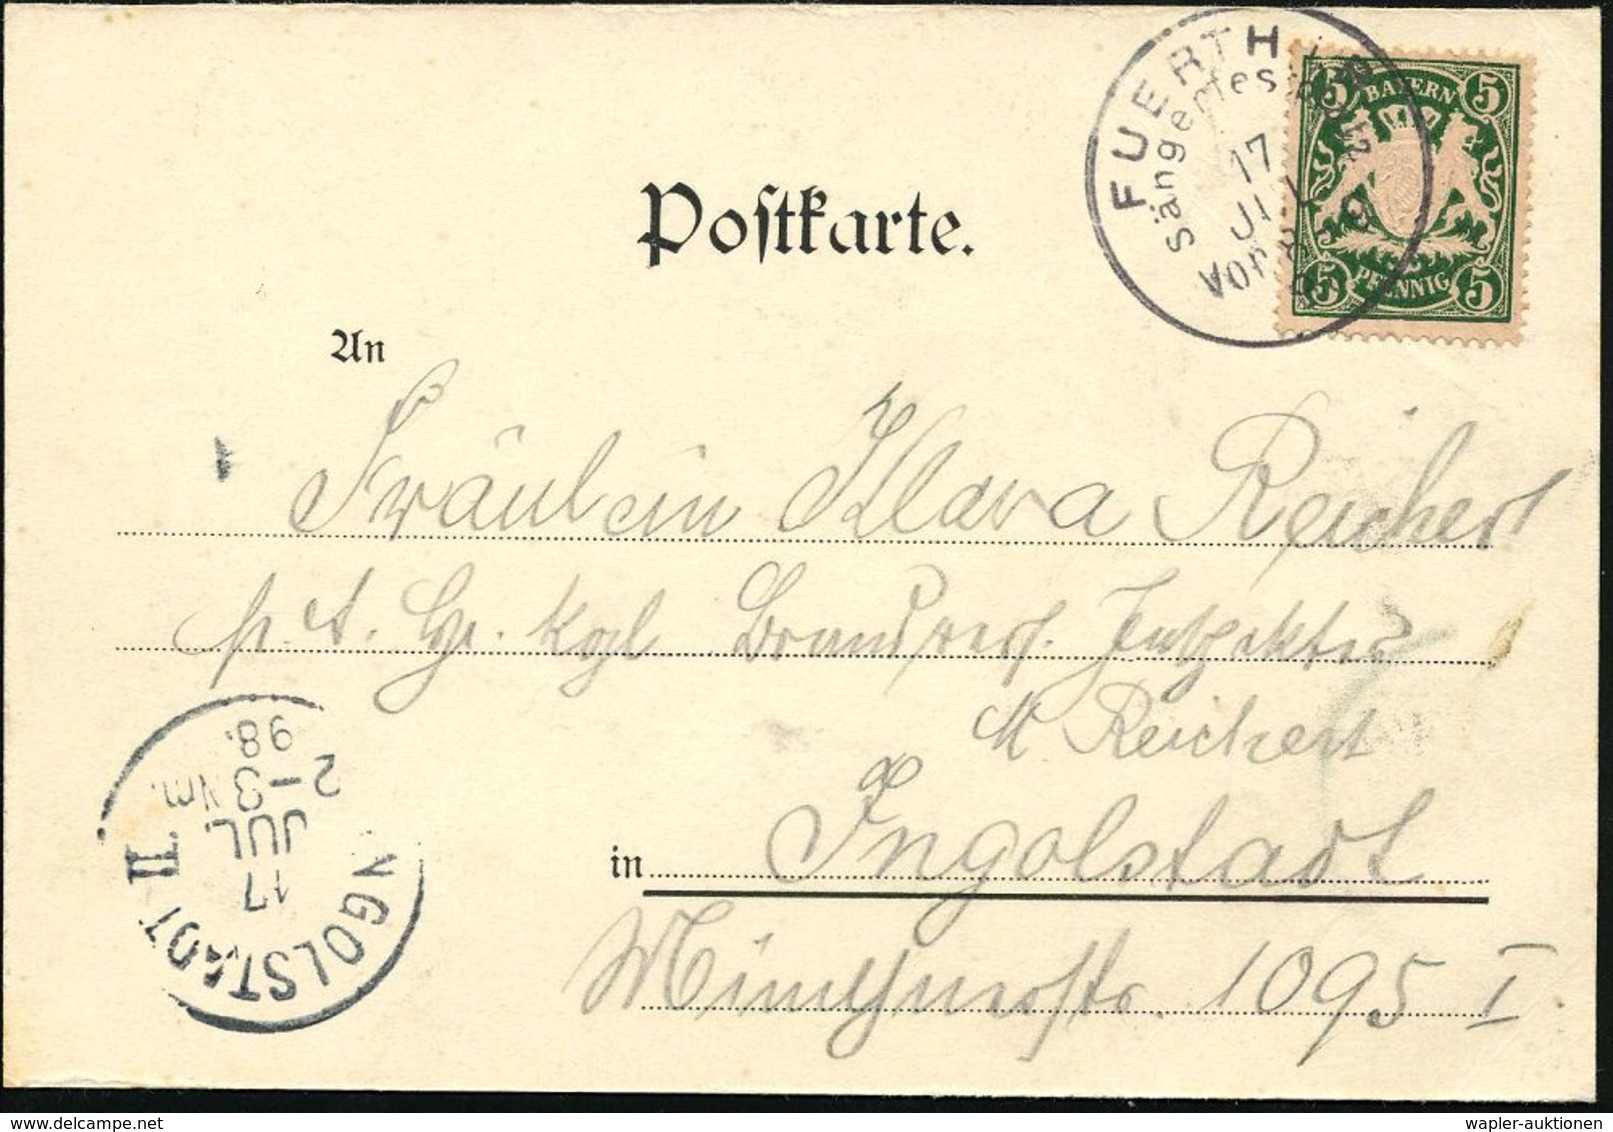 FUERTH
Sängerfest
17
JUL
Vorm
5 BAYERN 5
5 PFENNIG 5
Postkarte.
An
Fräulein Klara Reichert
p. A. Hr. Kgl Brandvers. Inspektor
M Reichert
in Ingolstadt
Münchnerstr. 1095 I
INGOLSTADT II
17
JUL.
2-3 Nm.
98.
wapler-auktionen